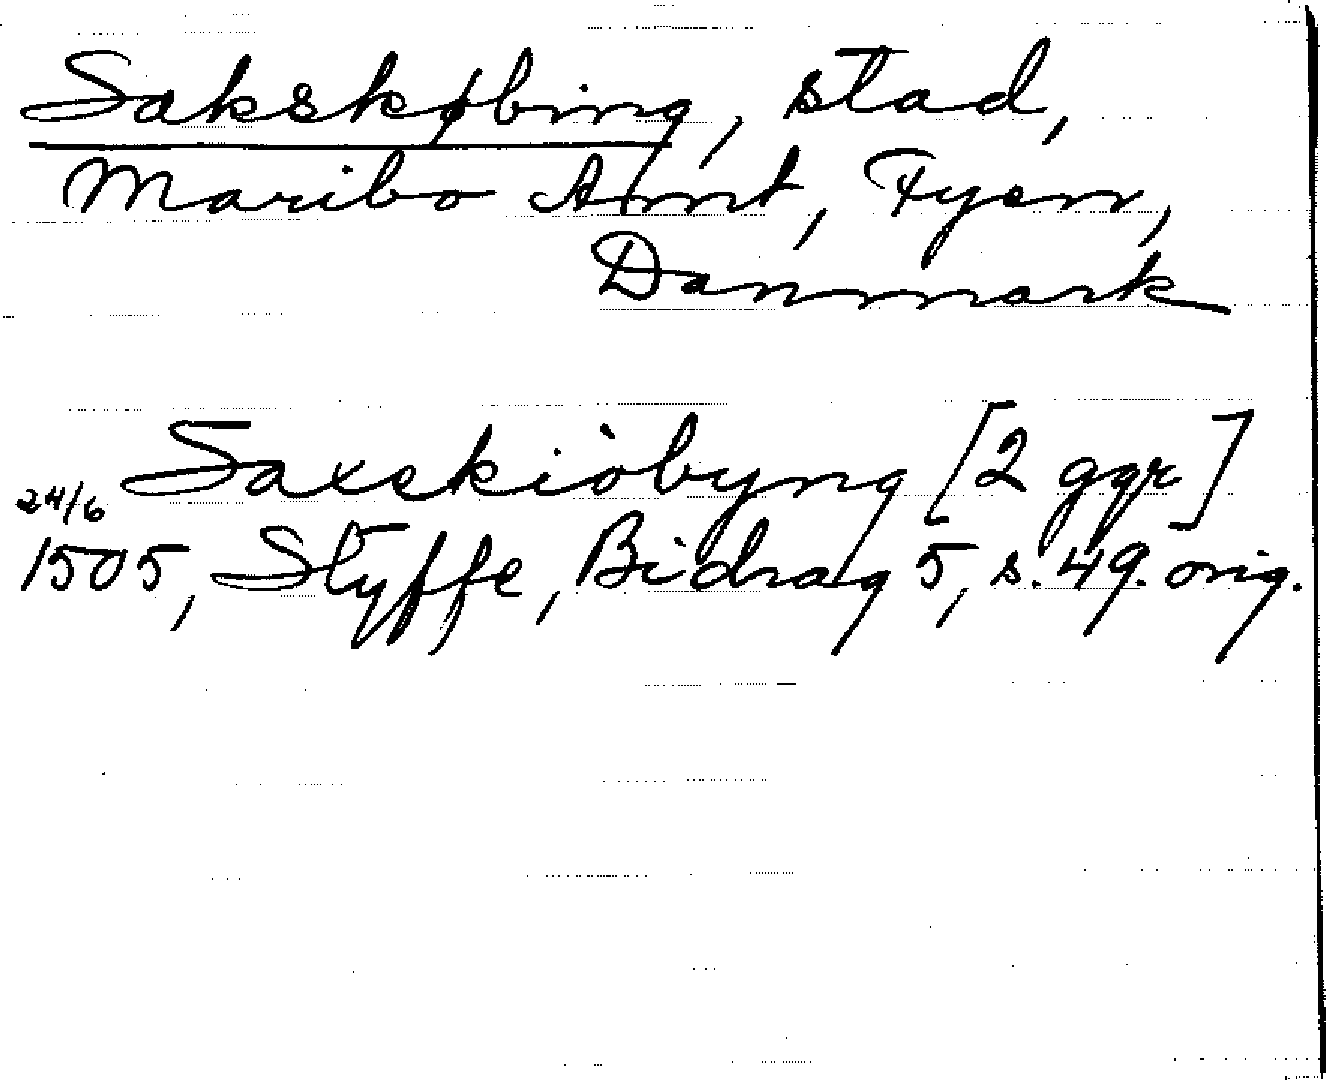 Sakskøbing, stad,
Maribo Amt, Fyen,
Danmark
Saxskiòbyng [2 ggr]
24/6
1505, Styffe, Bidrag 5, s. 49. orig.